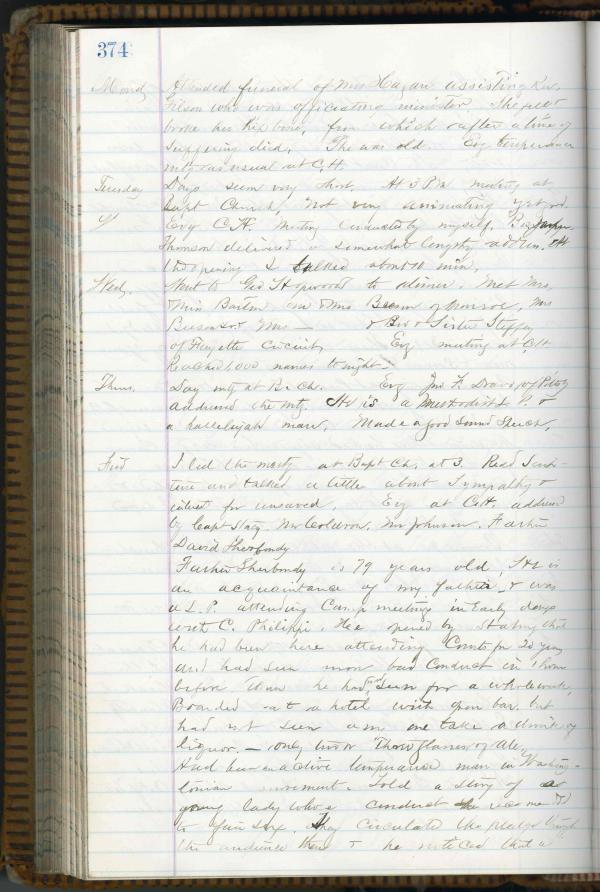 374
Mond Attended funeral of Mrs Hagan assisting Rev.
Gilson who was officiating minister. She fell &
broke her hip bone, from which after a time of
suffering died. She was old. Evg temperance
mtg as usual at C.H.
Tuesday Days seem very short. At 3 P.M. meeting at
Bapt Church, Not very animating yet good.
Evg C.H. Meeting conducted by myself. Bro
Thomson delivered a somewhat lengthy address. At
the opening I talked about 10 min,
Wedy. Went to Geo Hopwoods to dinner. Met Mrs,
& Miss Barton Mr & Mrs Beeson of Monroe, Mrs
Beeson & Mrs — & Bro & Sister Steffy
of Fayette Circuit, Evg meeting at C.H.
Reached 1000 names to night.
Thurs. Day mtg at B. Ch. Evg Jno F. of Pitsbg
addressed the mtg. He is a Methodist L. P. &
a hallelujah man. Made a good sound speech.
Frid I led the meetg at Bapt Ch. at 3. Read Scrip-
ture and talked a little about Sympathy &
interest for unsaved. Evg at C.H. addressed
by Capt Mr Mr Johnson. Father
David Sherbondy
Father Sherbondy is 79 years old, He is
an acquaintance of my father & was
a L. P. attending Camp meeting in early days
with C. Philippi. He opened by stating that
he had been here attending Courts for 20 years
and had seen more bad conduct in 1 hour
before than he had now seen for a whole week,
Boarded at a hotel with open bar, but
had not seen a man one take a drink of
liquor. — only two or three glasses of Ale,
Had been an active temperance man in Washing-
tonian movement. Told a story of a
young lady whose conduct
to fair sex. They circulated the pledge through
the audience then & he noticed that a